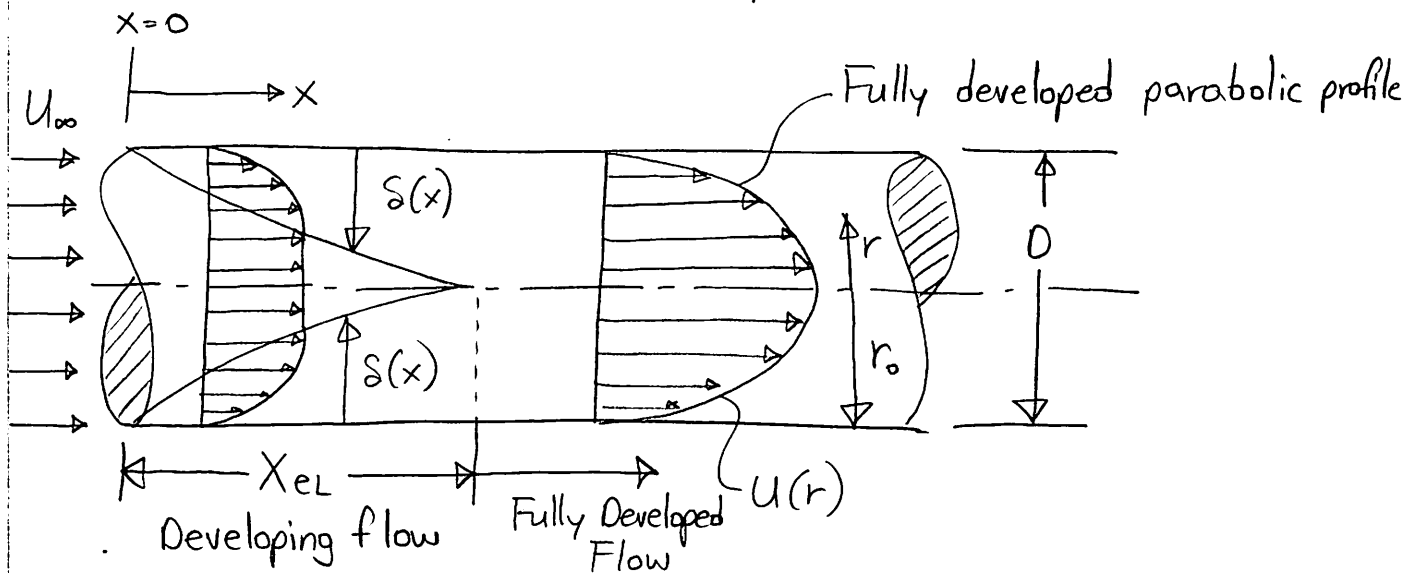 x=0
x
U∞
Fully developed parabolic profile
δ(x)
r
D
r₀
δ(x)
XeL
U(r)
Developing flow
Fully Developed
Flow